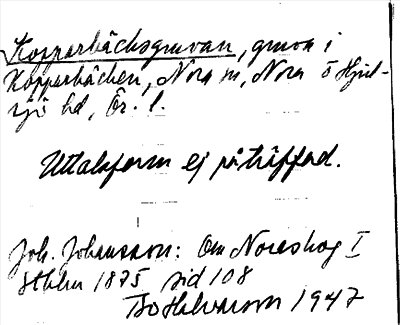 Kopparbäcksgruvan, gruva i
Kopperbäcken, Nora sn, Nora o Hjul-
sjö hd, Ör. l.
Uttalsform ej påträffad.
Joh. Johansson: Om Noraskog I
Sthlm 1875 sid 108
Bo Halvarson 1947